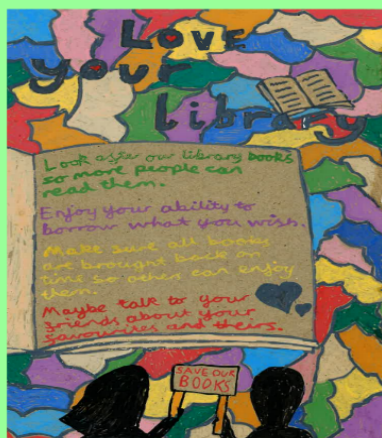 Love
your
library
Look after our library books
so more people can
read them.
Enjoy your ability to
borrow what you wish.
Make sure all books
are brought back on
time so others can enjoy
them.
Maybe talk to your
friends about your
favourites and theirs.
SAVE OUR
BOOKS